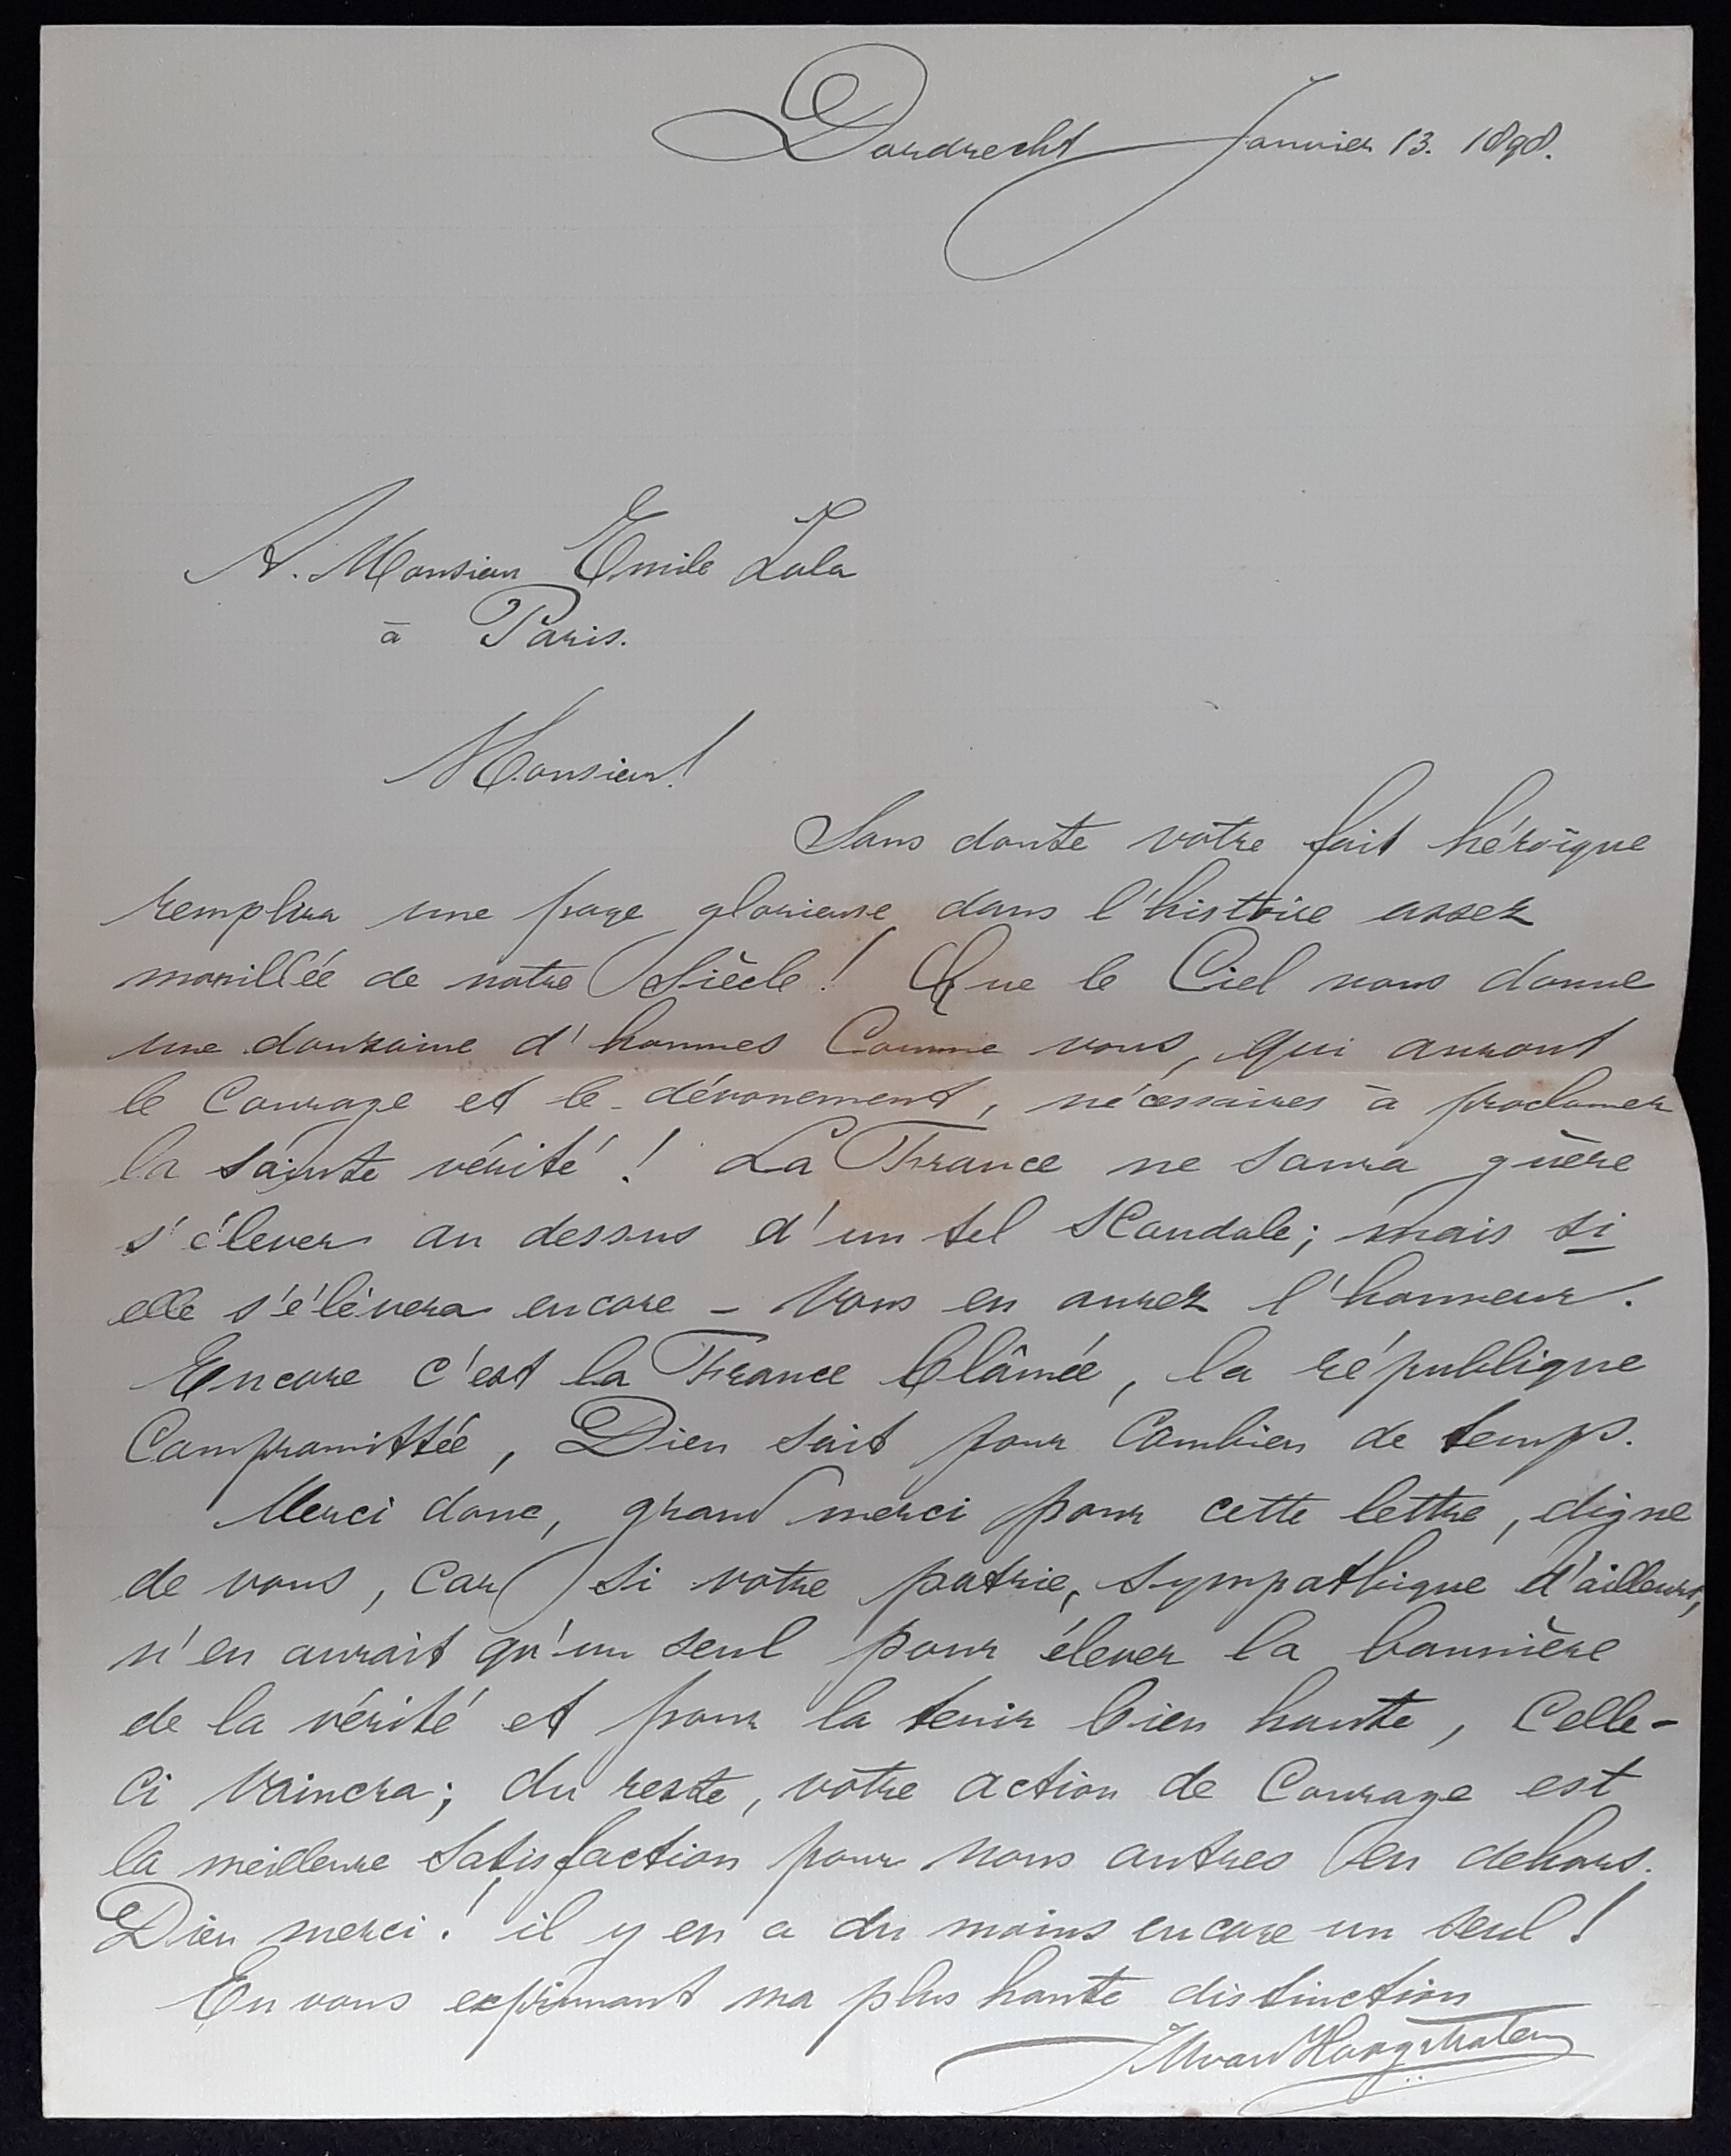 Dordrecht Janvier 13. 1898.
A. Monsieur Emile Zola
à Paris.
Monsieur!
Sans doute vôtre fait héroïque
remplira une page glorieuse dans l'histoire assez
mouillée de notre Siècle! Que le Ciel nous donne
une douzaine d'hommes Comme vous, qui auront
le Courage et le dévouement, nécessaires à proclamer
la sainte vérité! La France ne saura guère
s'élever au dessus d'un tel Scandale; mais si
elle s'élèvera encore – Vous en aurez l'honneur.
Encore c'est la France blâmée, la république
Compromittée, Dieu sait pour Combien de temps.
Merci donc, grand merci pour cette lettre, digne
de vous, Car si votre patrie, sympathique d'ailleurs,
n'en aurait qu'un seul pour élever la bannière
de la vérité et pour la tenir bien haute, Celle-
Ci Vaincra; du reste, vôtre action de Courage est
la meilleure Satisfaction pour nous autres en dehors.
Dieu merci! il y en a du moins encore un seul!
En vous exprimant ma plus haute distinction